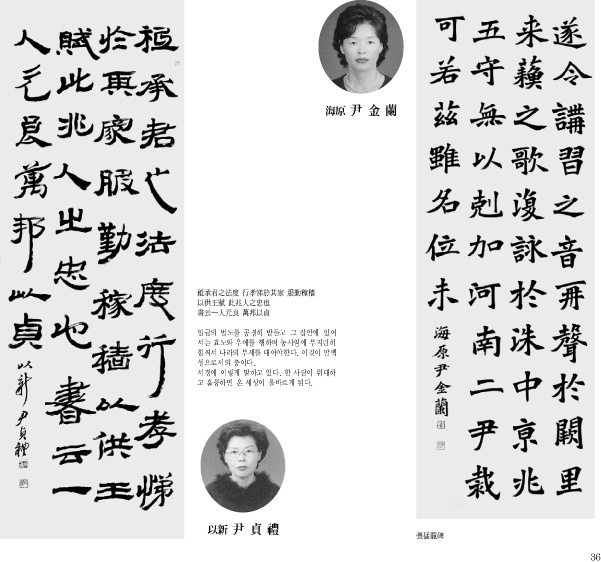 祗承君之法度行孝悌
於其家服勤稼穡以供王
賦此兆人之忠也書云一
人元良萬邦以貞
以新尹貞禮
海原 尹金蘭
祗承君之法度 行孝悌於其家 服勤稼穡
以供王賦 此兆人之忠也
書云一人元良 萬邦以貞
임금의 법도를 공경히 받들고 그 집안에 있어
서는 효도와 우애를 행하며 농사일에 부지런히
힘써서 나라의 부세를 대어야한다. 이것이 만백
성으로서의 충이다.
서경에 이렇게 말하고 있다. 한 사람이 위대하
고 훌륭하면 온 세상이 올바르게 된다.
以新 尹貞禮
遂令講習之音再聲於闕里
来蘇之歌復詠於洙中京兆
五守無以剋加河南二尹裁
可若茲雖名位未
海原尹金蘭
張猛龍碑
36